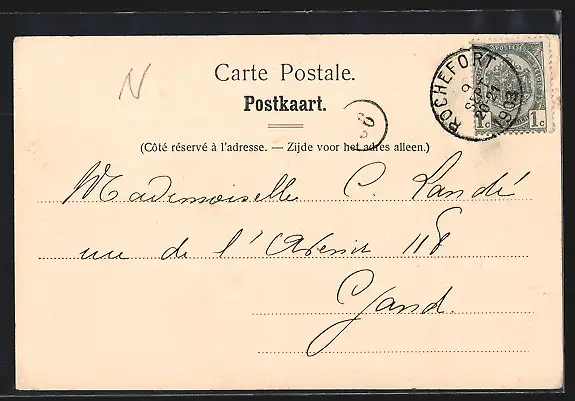 N
Carte Postale.
Postkaart.
(Côté réservé à l'adresse. — Zijde voor het adres alleen.)
ROCHEFORT
9
SEPT
1903
1c 1c
Mademoiselle C. Landé
rue de l'Avenir 118
Gand.